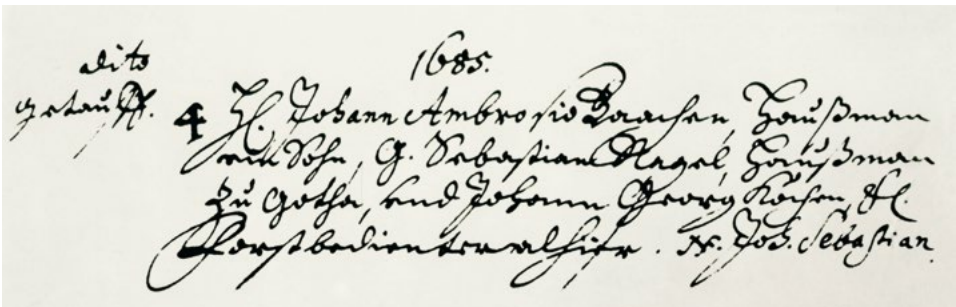 1685.
dito
getaufft.
4 H. Johann Ambrosio Baachen, Haußman
ein Sohn, G. Sebastian Nagel, Haußman
zu Gotha, und Johann Georg Kochen, Fl.
Forstbedienter alhier. N. Joh. Sebastian